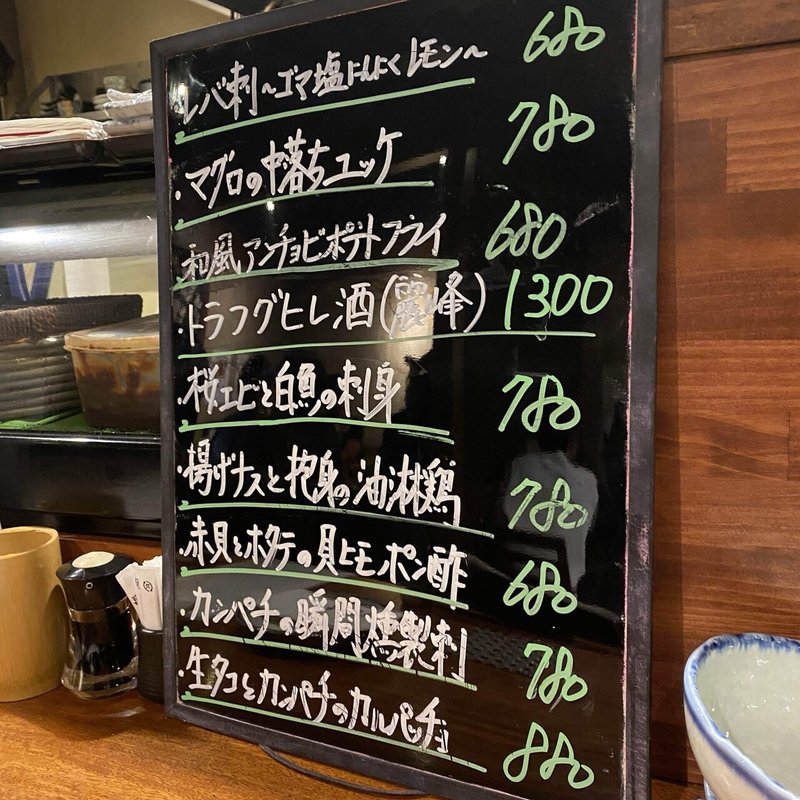 レバ刺〜ゴマ塩にんにくレモン〜 680
・マグロの中落ちユッケ 780
和風アンチョビポテトフライ 680
・トラフグヒレ酒(麗峰) 1300
・桜エビと白魚の刺身 780
・揚げナスと抱身の油淋鶏 780
・赤貝とホタテの貝ヒモポン酢 680
・カンパチの瞬間燻製刺 780
・生タコとカンパチのカルパッチョ 880